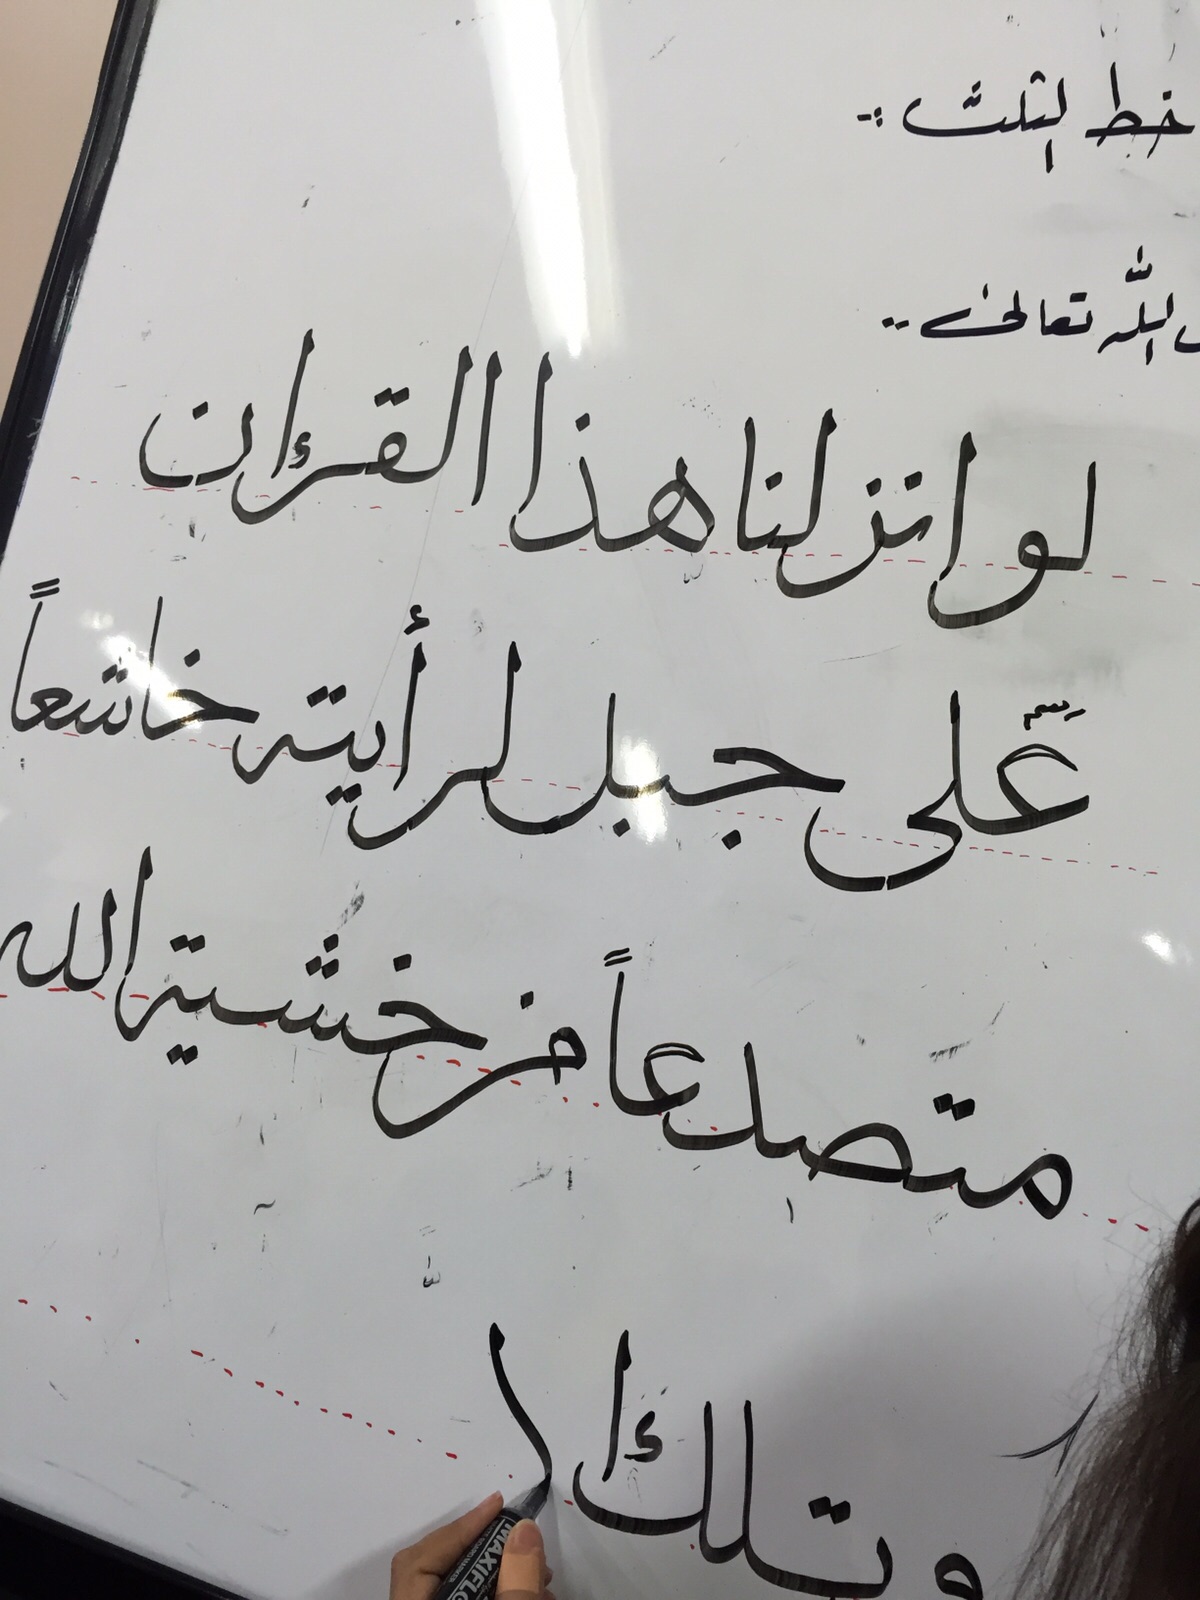 خط الثلث :-
الله تعالى ..
لو انزلنا هذا القرءان
على جبل لرأيته خاشعاً
متصدعاً من خشية الله
وتلك ا
MAXIFLO